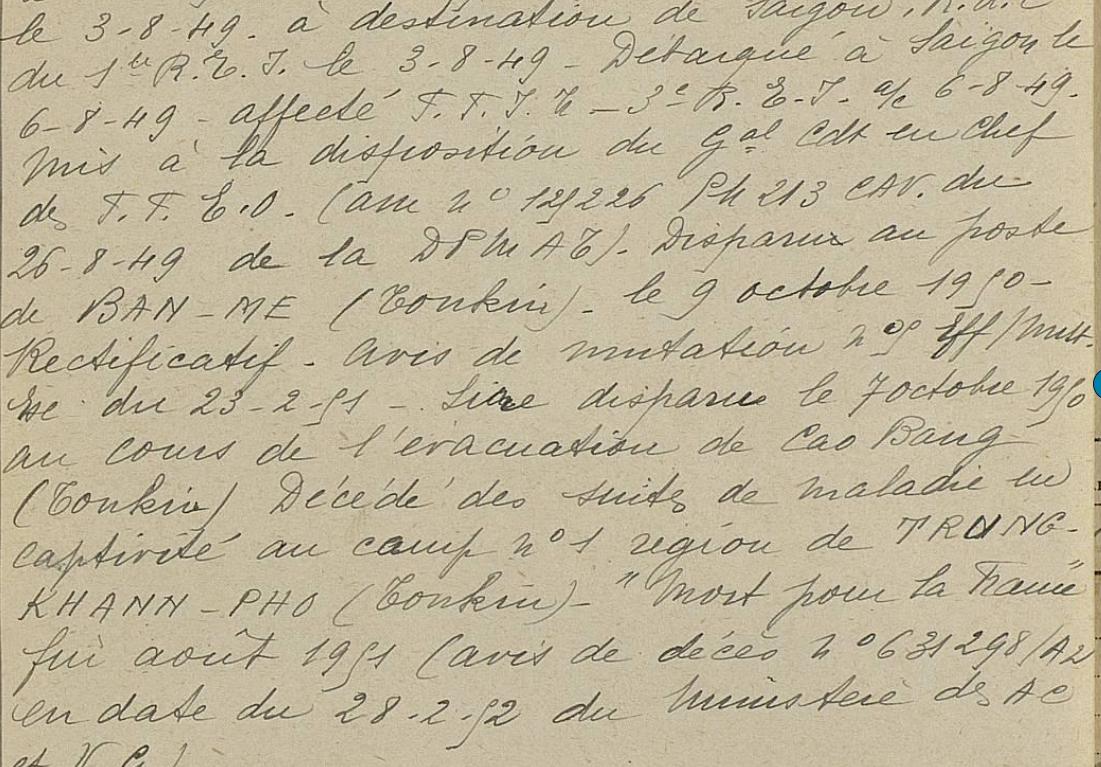 le 3-8-49. à destination de Saigon. R.d.c
du 1er R.E.I. le 3-8-49 - Débarqué à Saigon le
6-8-49 - affecté F.T.I.T - 3e R.E.I. a/c 6-8-49.
Mis à la disposition du Gal Cdt en Chef
des F.T.E.O. (am n° 125226 PM 213 CAV. du
26-8-49 de la DPMAT). Disparu au poste
de BAN-ME (Tonkin). le 9 octobre 1950 -
Rectificatif - avis de mutation n° Eff/Mut.
du 23-2-51 - Lire disparu le 7 octobre 1950
au cours de l'évacuation de Cao Bang
(Tonkin) Décédé des suites de maladie en
captivité au camp n° 1 région de TRUNG-
KHANN-PHO (Tonkin) - "Mort pour la France"
fin août 1951 (avis de décès n° 631298/A2
en date du 28-2-52 du Ministère des AC
et V.G.)